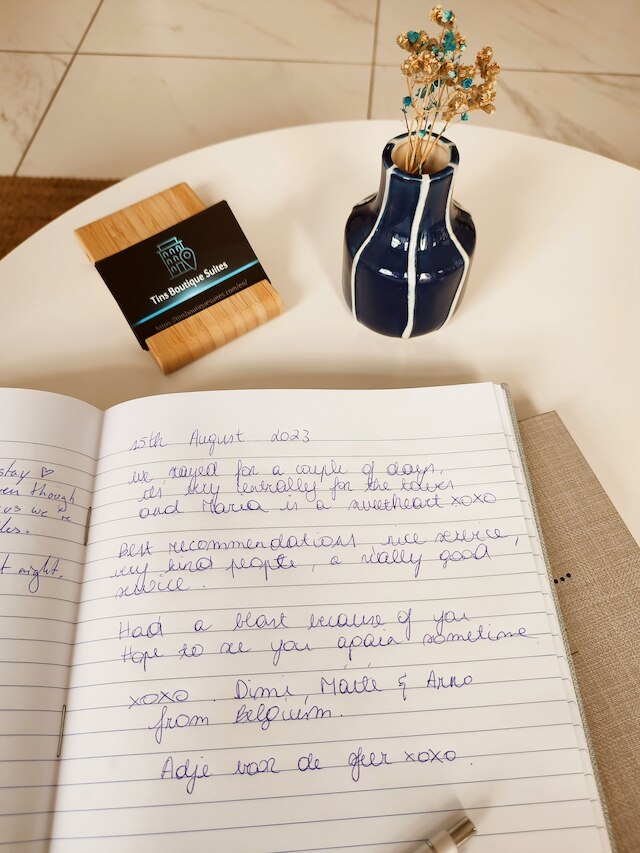 Tins Boutique Suites
https://tinsboutiquesuites.com/en/
stay ♡
even though
we're
night,
15th August 2023
we stayed for a couple of days,
it's very centrally for the
and Maria is a sweetheart xoxo
Best recommendations nice service,
very kind people, a really good
service.
Had a blast because of you
Hope to see you again sometime
xoxo Dimi, & Arno
from Belgium.
Adje voor de sfeer xoxo